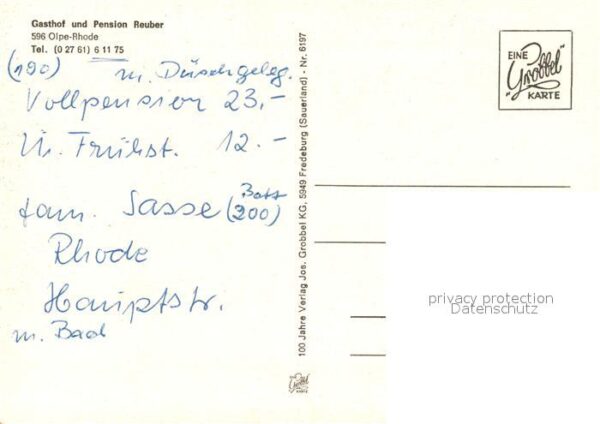 Gasthof und Pension Reuber
596 Olpe-Rhode
Tel. (0 27 61) 6 11 75
(190) m. Duschgeleg.
Vollpension 23,-
Ü. Frühst. 12.-
Fam. Sasse (200)
Rhode
Hauptstr.
m. Bad
100 Jahre Verlag Jos. Grobbel KG, 5949 Fredeburg (Sauerland) - Nr. 6197
EINE
"Grobbel"
KARTE
privacy protection
Datenschutz